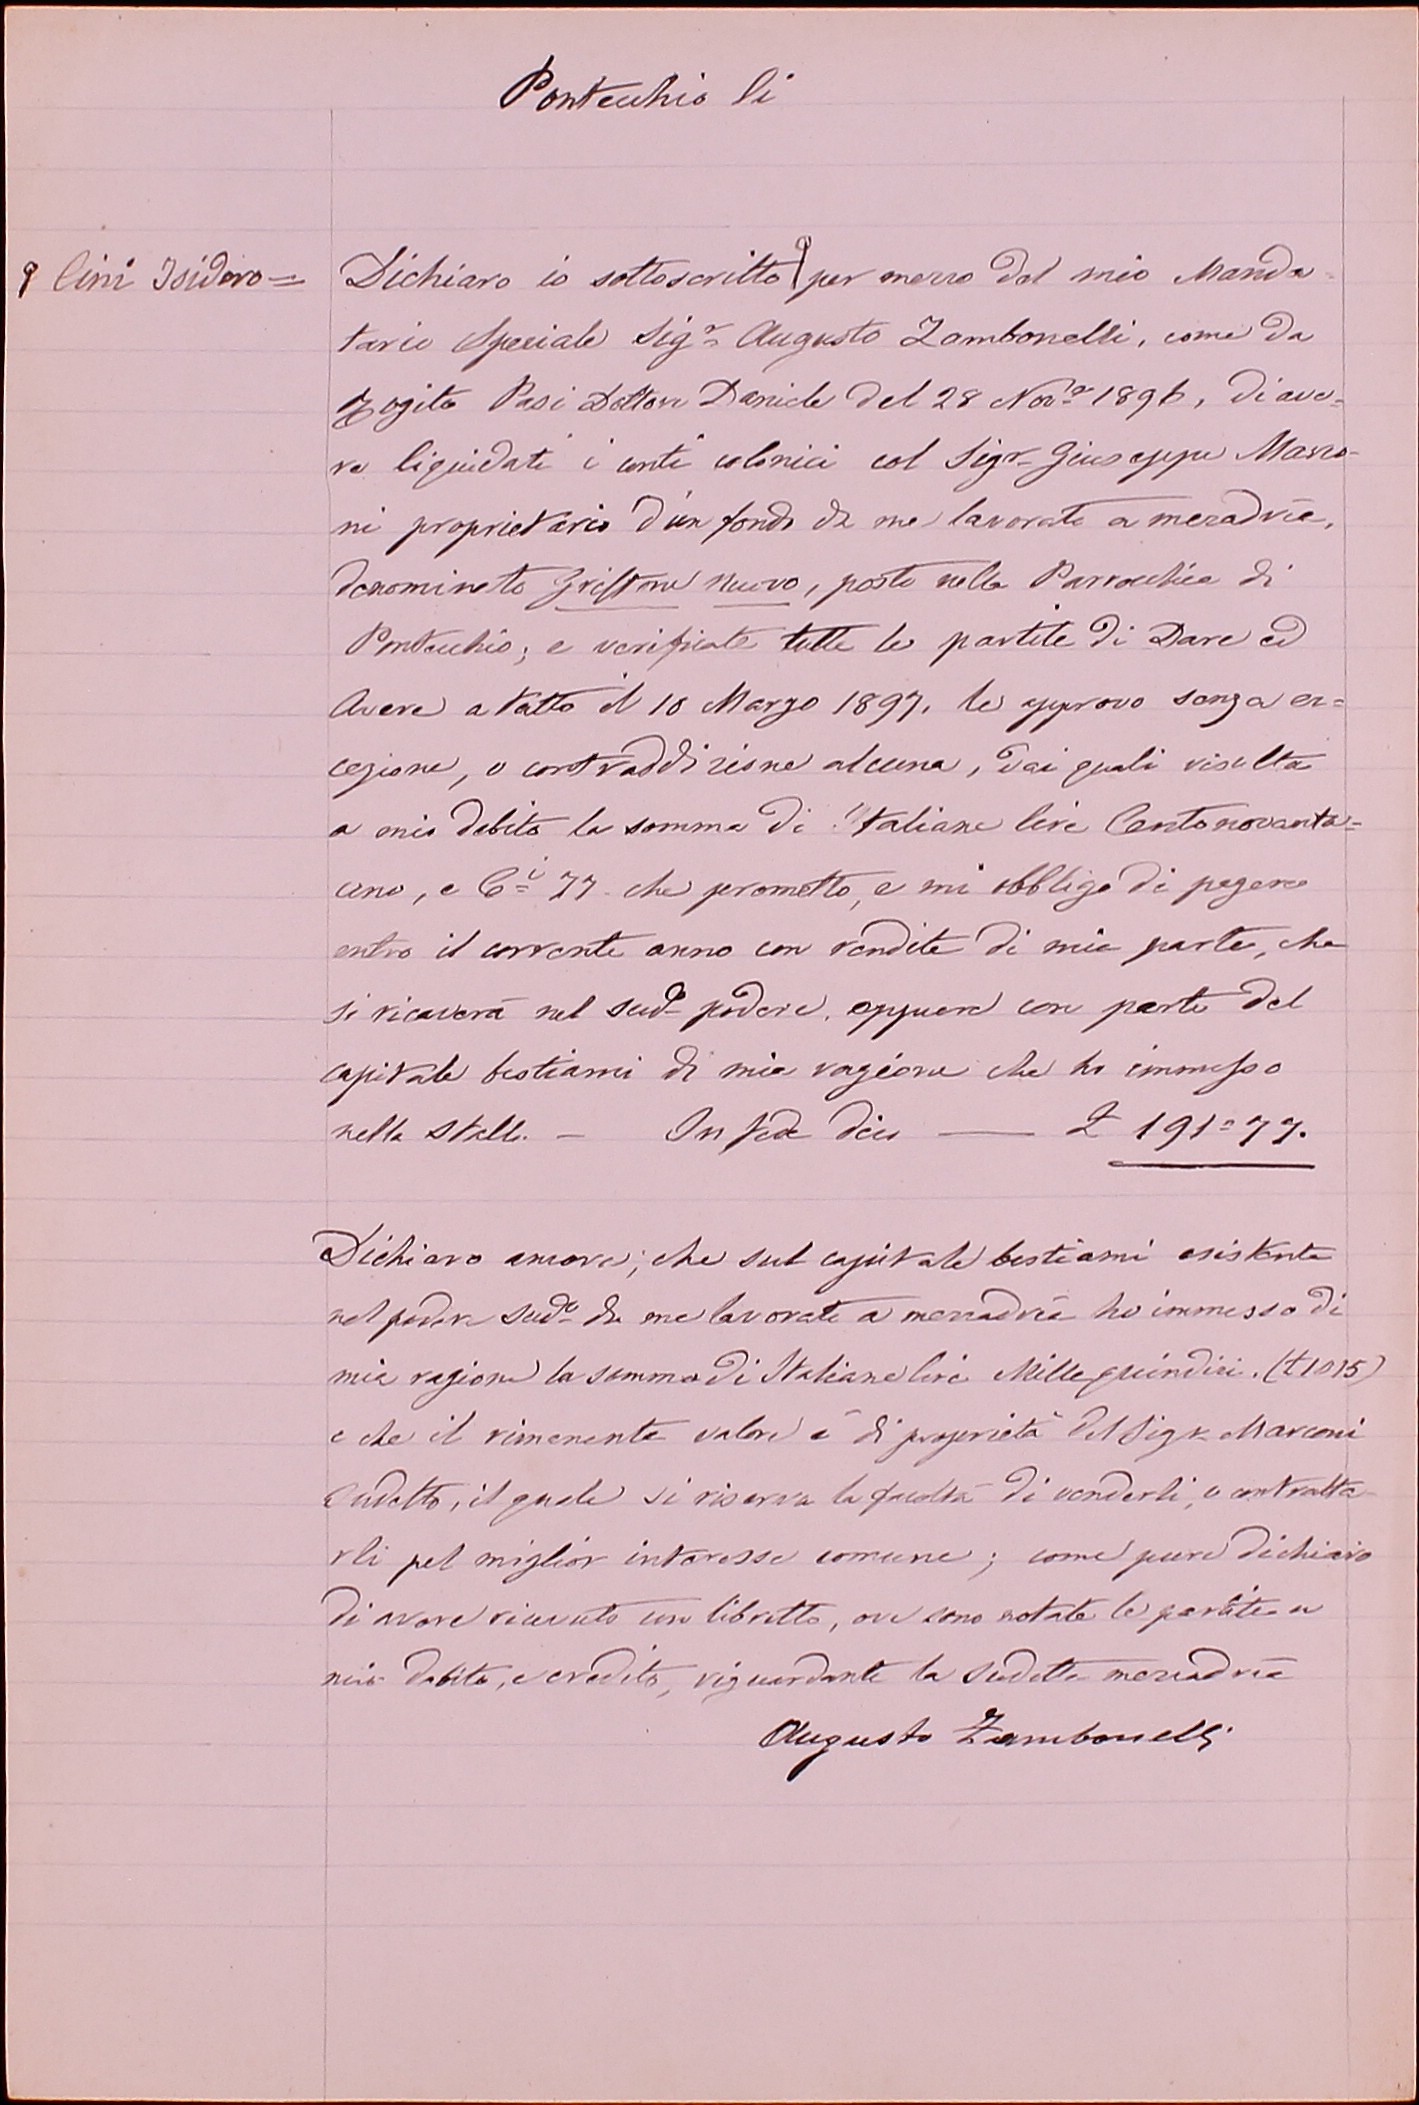 Pontecchio li
Cini Isidoro =
Dichiaro io sottoscritto per mezzo del mio Manda=
tario Speciale Sig.r Augusto Zambonelli, come da
Rogito Pasi Dottore Daniele del 28 Nov.e 1896, di ave=
re liquidati i conti colonici col Sig.r Giuseppe Marco=
ni proprietario d'un fondo da me lavorato a mezzadria,
denominato Griffone nuovo, posto nella Parrocchia di
Pontecchio; e verificate tutte le partite di Dare ed
Avere a tutto il 10 Marzo 1897. le approvo senza ec=
cezione, o contraddizione alcuna, dai quali risulta
a mio debito la somma di Italiane lire Centonovanta=
uno, e C.i 77 che prometto, e mi obbligo di pagare
entro il corrente anno con rendite di mia parte, che
si ricaverà nel sud.o podere, oppure con parte del
capitale bestiami di mia ragione che ho immesso
nella stalla. — In fede dico — £ 191=77.
Dichiaro ancora; che sul capitale bestiami esistente
nel podere sud.o da me lavorato a mezzadria ho immesso di
mia ragione la somma di Italiane lire Mille quindici. (£1015)
e che il rimanente valore è di proprietà del Sig.r Marconi
sudetto, il quale si riserva la facoltà di venderli, o contratta=
rli pel miglior interesse comune; come pure dichiaro
di avere ricevuto un libretto, ove sono notate le partite a
mio debito, e credito, riguardante la sudetta mezzadria
Augusto Zambonelli